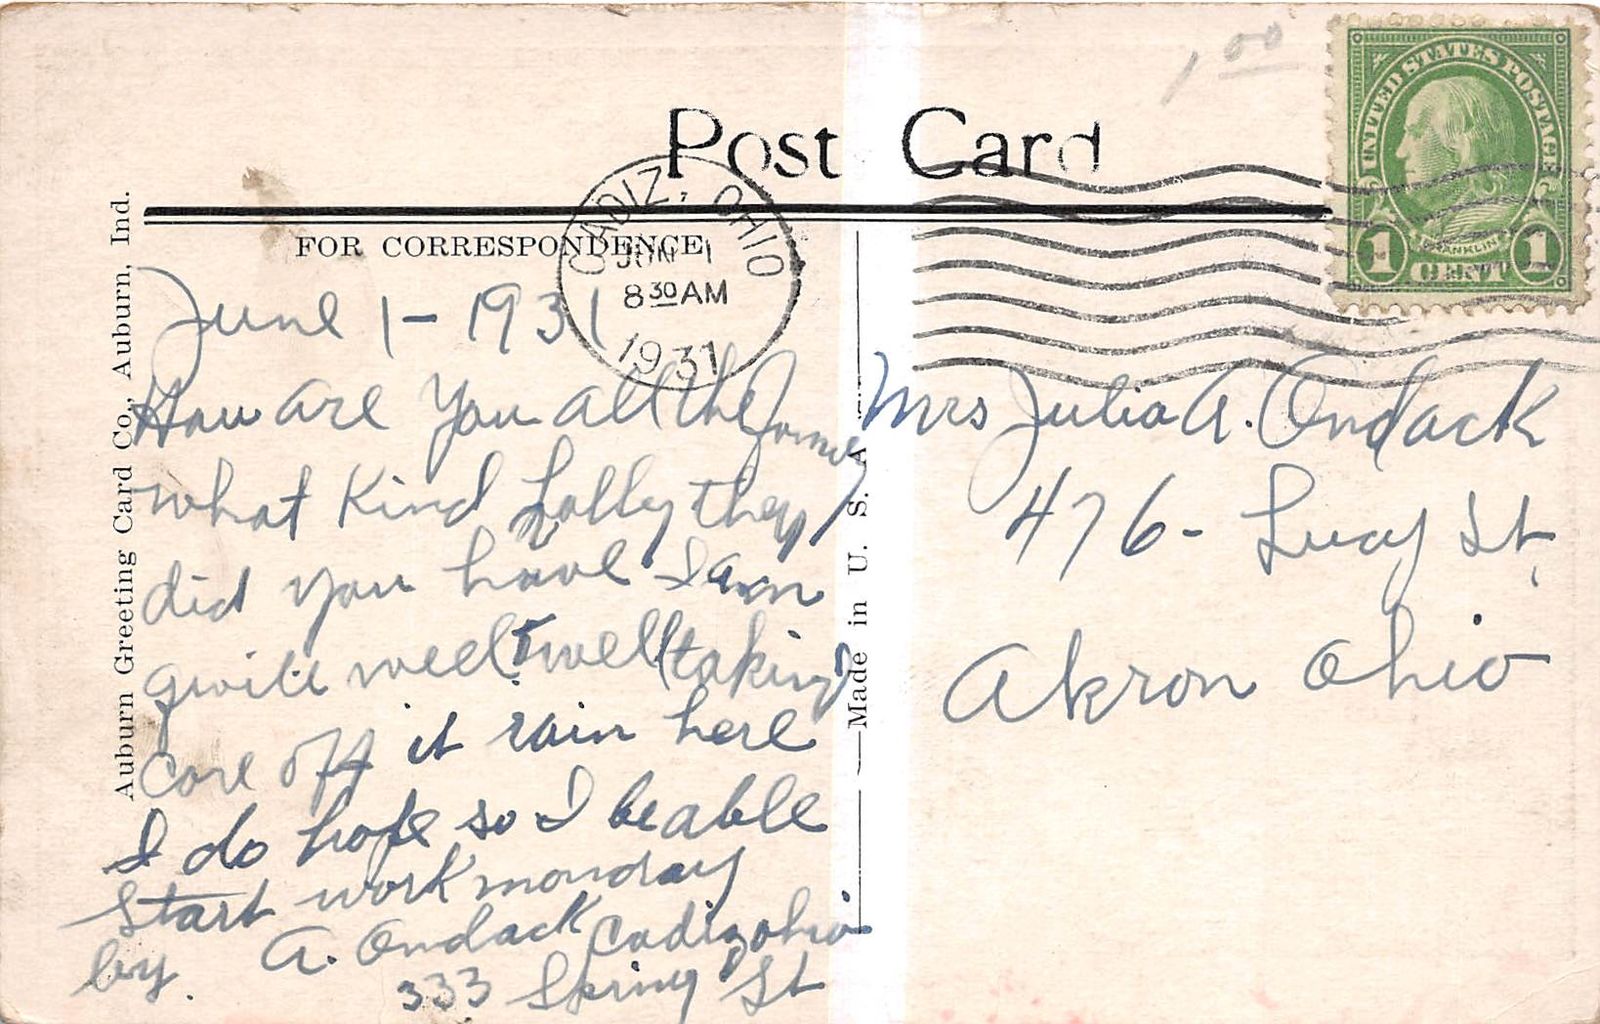 1.00
Post Card
UNITED STATES POSTAGE
FRANKLIN
1 CENT 1
CADIZ, OHIO
JUN 1
8 30 AM
1931
FOR CORRESPONDENCE
Auburn Greeting Card Co., Auburn, Ind.
Made in U. S. A
June 1 - 1931
How are you all the
what Kind they
did you have I am
quite well well taking
care off it rain here
I do hope so I be able
start work monday
by. A. Ondack Cadiz ohio
333 Spring St
Mrs Julia A. Ondack
476 - Lucy St,
Akron Ohio